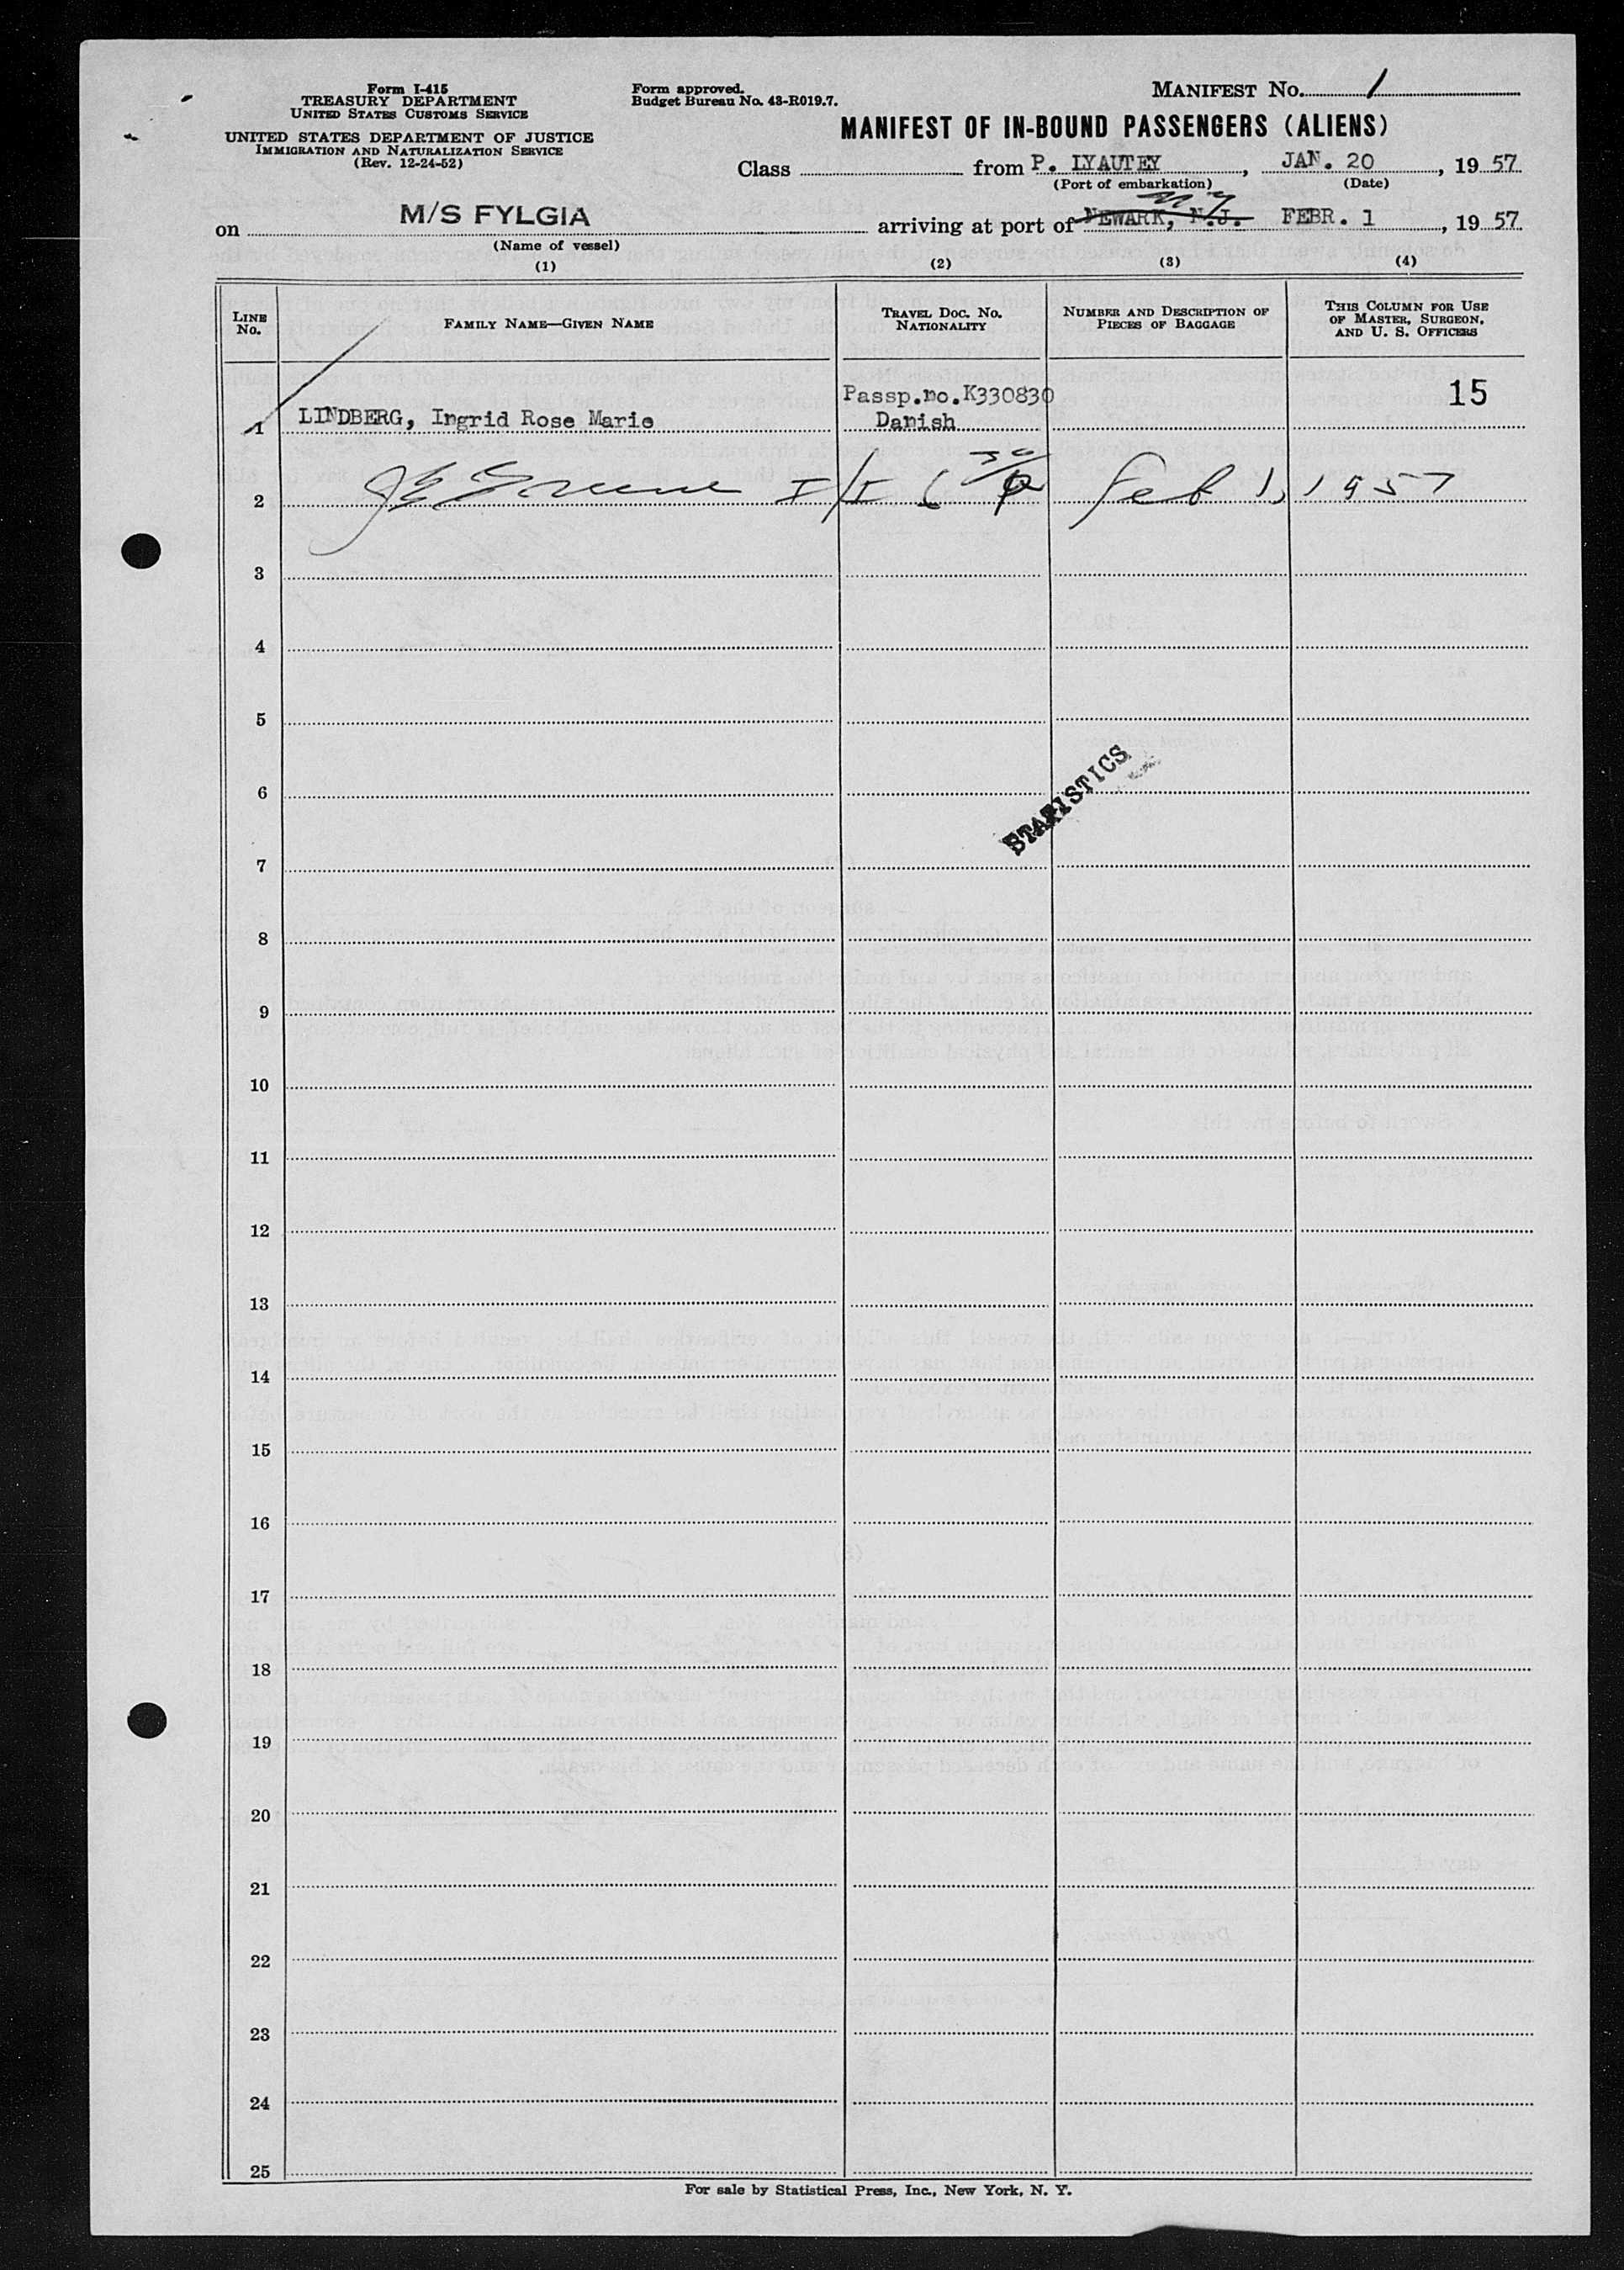 Form I-415
TREASURY DEPARTMENT
UNITED STATES CUSTOMS SERVICE
UNITED STATES DEPARTMENT OF JUSTICE
IMMIGRATION AND NATURALIZATION SERVICE
(Rev. 12-24-52)
Form approved.
Budget Bureau No. 43-R019.7.
MANIFEST No. 1
MANIFEST OF IN-BOUND PASSENGERS (ALIENS)
Class from P. LYAUTEY, JAN. 20, 1957
(Port of embarkation) (Date)
on M/S FYLGIA arriving at port of NEWARK, N.J. FEBR. 1, 1957
(Name of vessel)
(1) (2) (3) (4)
LINE No. FAMILY NAME—GIVEN NAME TRAVEL DOC. No. NATIONALITY NUMBER AND DESCRIPTION OF PIECES OF BAGGAGE THIS COLUMN FOR USE OF MASTER, SURGEON, AND U. S. OFFICERS
Passp.no.K330830 15
1 LINDBERG, Ingrid Rose Marie Danish
2 Feb 1, 1957
3
4
5
STATISTICS
6
7
8
9
10
11
12
13
14
15
16
17
18
19
20
21
22
23
24
25
For sale by Statistical Press, Inc., New York, N. Y.